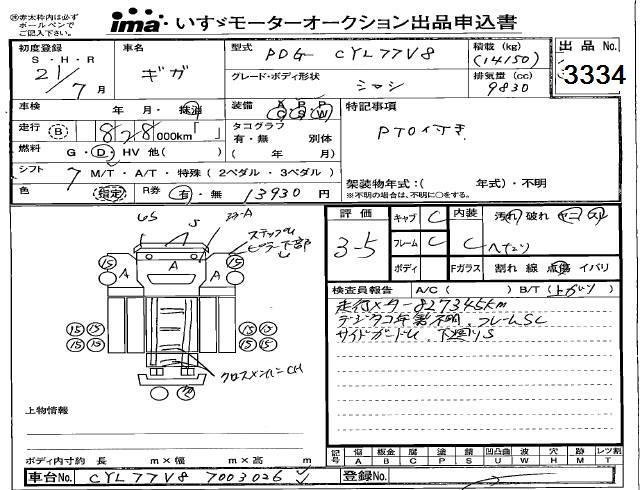 ※赤太枠内は必ず
ボールペンで
ご記入下さい。
ima いすゞモーターオークション出品申込書
初度登録
S・H・R
21/7 月
車名
ギガ
型式 PDG- CYL77V8
グレード・ボディ形状
シャシ
積載(kg)
(14150)
排気量(cc)
9830
出品 No.
3334
車検 年・月・抹消
装備 A P P C S W
走行 B 828,000km「 」
タコグラフ
有・無 別体
( 年 月)
燃料 G・D・HV 他( )
シフト 7 M/T・A/T・特殊(2ペダル・3ペダル)
色 (指定) R券 有・無 13930 円
特記事項
PTO付き
架装物年式:( 年式)・不明
※不明の場合は、不明に○をする。
評価 3-5
キャブ C 内装 汚れ 破れ ヤニ スレ
フレーム C C ヘたり
ボディ Fガラス 割れ 線 点傷 イバリ
検査員報告 A/C( ) B/T(上がり)
走行メーター827345km
デジタコ年製不明、フレームSC
サイドガードU、下廻りS
US
S
コーA
ステップU
ピラー下部U
A
A
A
15 15
15 15 15 15
15 15 15 15
12
クロスメンバーCH
上物情報
ボディ内寸約 長 m×幅 m×高 m
記号 傷 A 板金 B 腐 C 塗 P 錆 S 凹凸曲 U 波 W 穴 H 跡 M レツ割 T
車台No. CYL77V8 7003026
登録No.